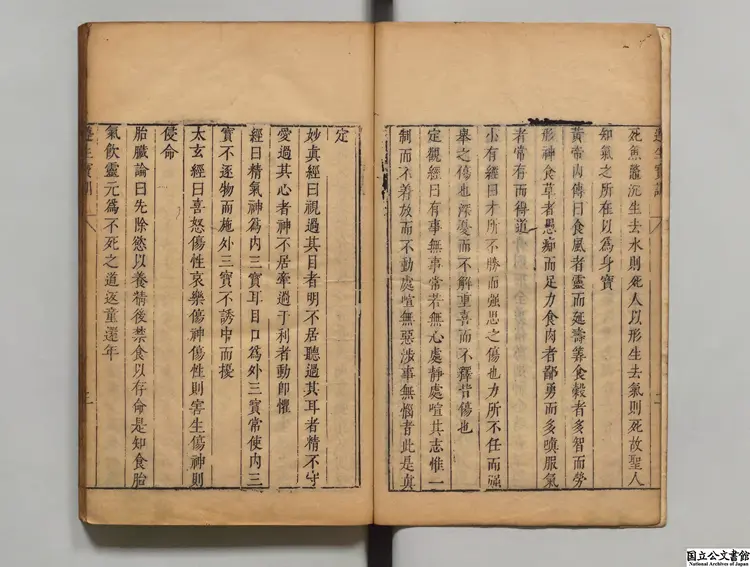 生寶訓
死魚鼈沉生去水則死人以形生去氣則死故聖人
知氣之所在以爲身寶
黃帝內傳曰食風者靈而延壽筭食穀者多智而勞
形神食草者愚痴而足力食肉者鄙勇而多嗔服氣
者常有而得道
小有經曰才所不勝而强思之傷也力所不任而强
舉之傷也深憂而不解重喜而不釋皆傷也
定觀經曰有事無事常若無心處靜處喧其志惟一
制而不着放而不動處喧無惡涉事無惱者此是真
定
妙真經曰視過其目者明不居聽過其耳者精不守
愛過其心者神不居牽過于利者動即懼
經曰精氣神爲內三寶耳目口爲外三寶常使內三
寶不逐物而施外三寶不誘中而擾
太玄經曰喜怒傷性哀樂傷神傷性則害生傷神則
侵命
胎臟論曰先除慾以養精後禁食以存命是知食胎
氣飲靈元爲不死之道返童還年
生寶訓
三
国立公文書館
National Archives of Japan